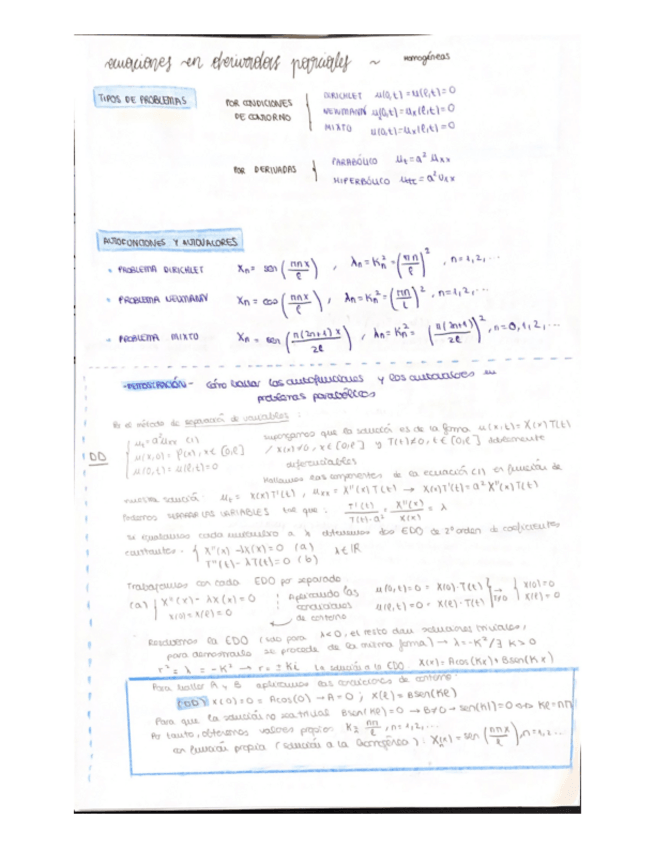 ecuaciones en derivadas parciales ~ homogéneas
TIPOS DE PROBLEMAS
POR CONDICIONES DE CONTORNO
DIRICHLET u(0,t)=u(ℓ,t)=0
NEWMANN ux(0,t)=ux(ℓ,t)=0
MIXTO u(0,t)=ux(ℓ,t)=0
POR DERIVADAS
PARABÓLICO ut=a² uxx
HIPERBÓLICO utt=a²uxx
AUTOFUNCIONES Y AUTOVALORES
PROBLEMA DIRICHLET Xn = sen (πnx/ℓ) , λn=Kn²=(πn/ℓ)² , n=1,2,...
PROBLEMA NEUMANN Xn = cos (πnx/ℓ) , λn=Kn²=(πn/ℓ)² , n=1,2,...
PROBLEMA MIXTO Xn = sen (π(2n+1)x/2ℓ) , λn=Kn²= (π(2n+1)/2ℓ)² , n=0,1,2,...
-DEMOSTRACIÓN- Cómo hallar las autofunciones y los autovalores en
problemas parabólicos
Por el método de separación de variables :
DD
ut=a²uxx (1)
u(x,0)= f(x), x∈[0,ℓ]
u(0,t)=u(ℓ,t)=0
supongamos que la solución es de la forma u(x,t)=X(x)T(t)
/ X(x)≠0, x∈[0,ℓ] y T(t)≠0, t∈[0,ℓ] doblemente
diferenciables
Hallamos las componentes de la ecuación (1) en función de
nuestra solución : ut = X(x)T'(t) , uxx = X''(x)T(t) → X(x)T'(t)=a²X''(x)T(t)
Podemos SEPARAR LAS VARIABLES tal que : T'(t)/T(t)·a² = X''(x)/X(x) = λ
Si igualamos cada miembro a λ obtenemos dos EDO de 2º orden de coeficientes
constantes.
X''(x) -λX(x)=0 (a) λ∈ℝ
T''(t) -λT(t)=0 (b)
Trabajamos con cada EDO por separado
(a) X''(x)-λX(x)=0
X(0)=X(ℓ)=0
Aplicando las condiciones de contorno
u(0,t)=0 = X(0)·T(t)
u(ℓ,t)=0 = X(ℓ)·T(t)
→ T≠0
X(0)=0
X(ℓ)=0
Resolvemos la EDO (solo para λ<0, el resto dan soluciones triviales,
para demostrarlo se procede de la misma forma) → λ=-K²/∃ K>0
r²=λ=-K² → r=±Ki La solución a la EDO X(x)=Acos(Kx)+Bsen(Kx)
Para hallar A y B aplicamos las condiciones de contorno:
(DD) X(0)=0= Acos(0)→A=0 ; X(ℓ)=Bsen(Kℓ)
Para que la solución no sea trivial Bsen(Kℓ)=0 → B≠0 → sen(Kℓ)=0 ⇔ Kℓ=πn
Por tanto, obtenemos valores propios K= πn/ℓ , n=1,2,...
en función propia (solución a la homogénea) : Xn(x)=sen (πnx/ℓ), n=1,2...